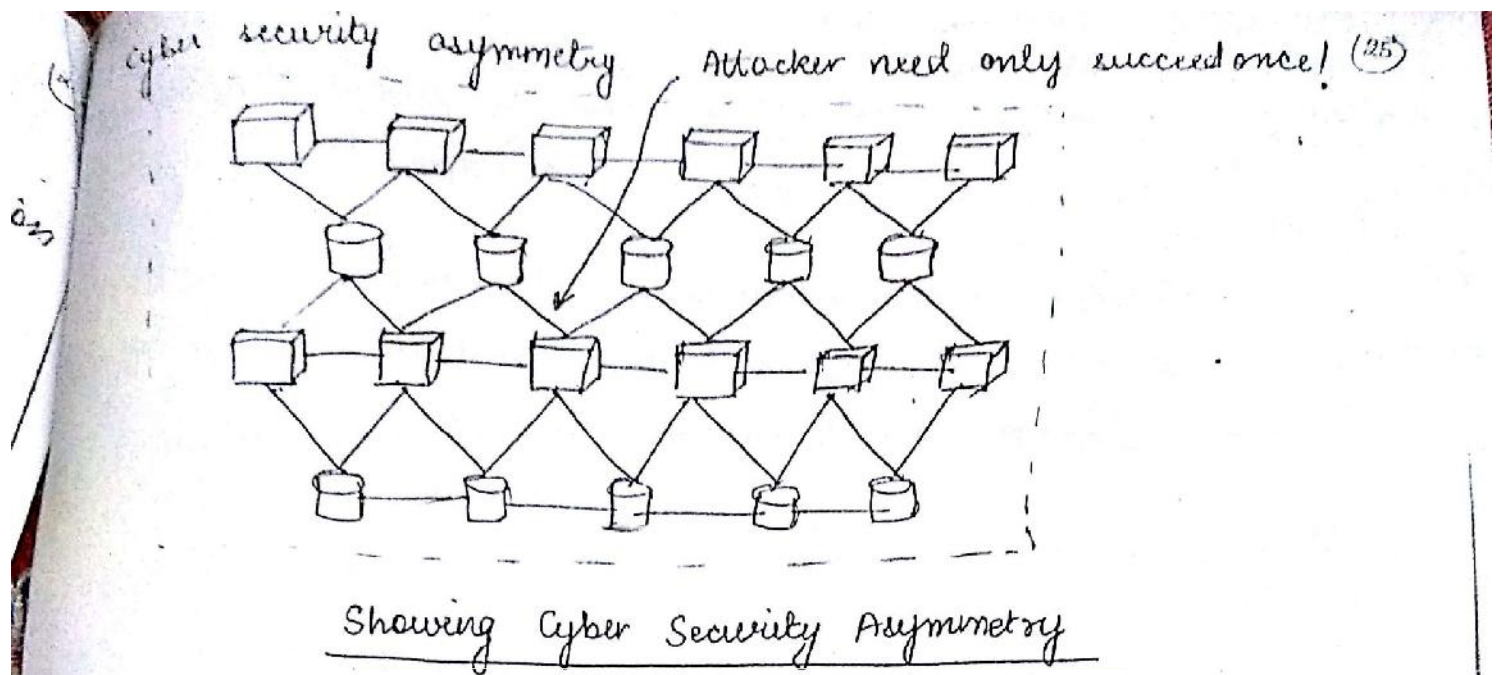 cyber security asymmetry Attacker need only succeed once! (25)
Showing Cyber Security Asymmetry